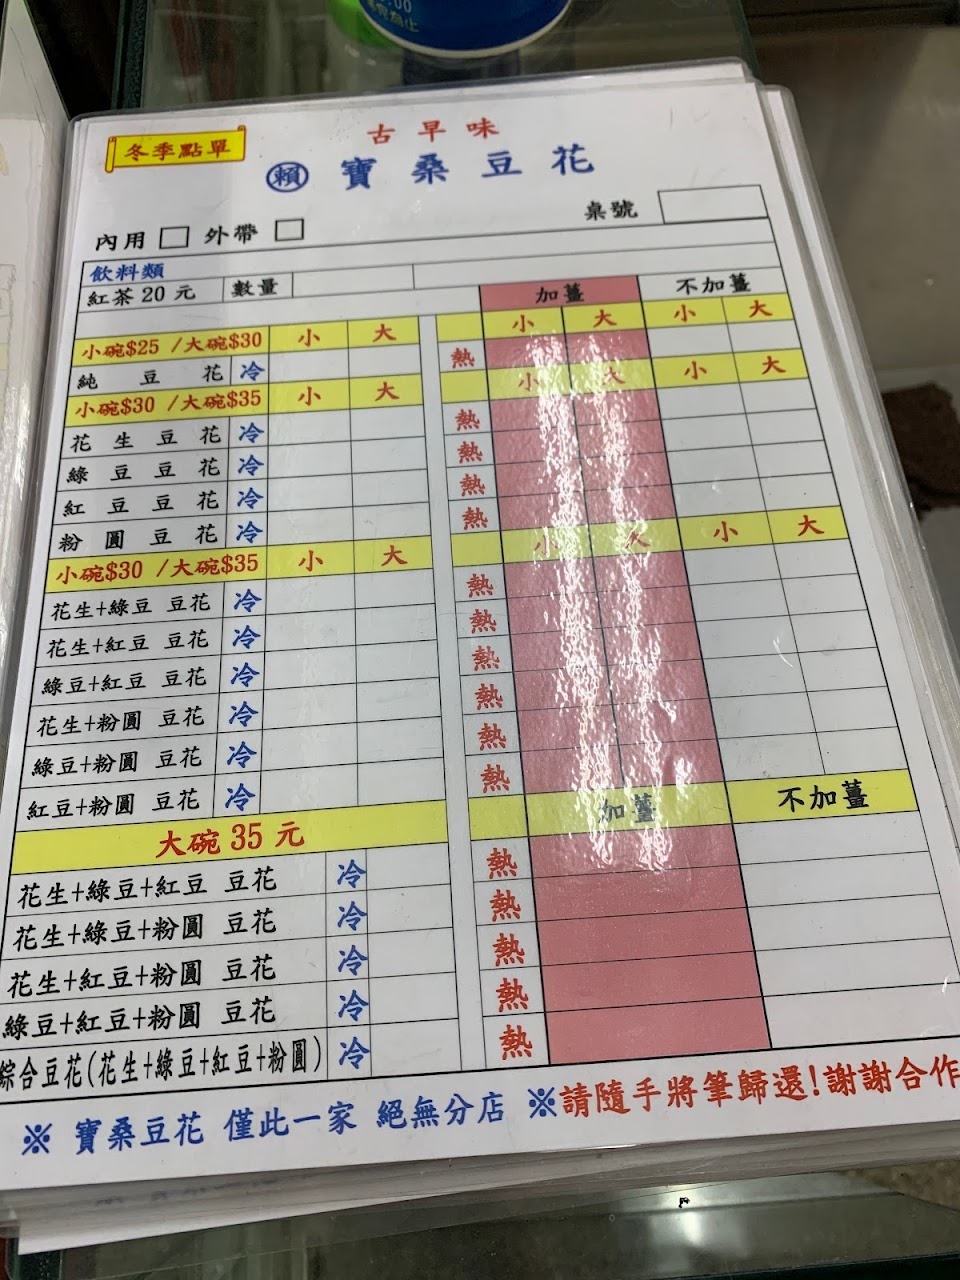 :00
冬季點單
古早味
賴 寶桑豆花
內用 □ 外帶 □ 桌號
飲料類
紅茶20元 數量
加薑 不加薑
小碗$25 /大碗$30 小 大 小 大 小 大
純豆花 冷 熱
小碗$30 /大碗$35 小 大 小 大 小 大
花生豆花 冷 熱
綠豆豆花 冷 熱
紅豆豆花 冷 熱
粉圓豆花 冷 熱
小碗$30 /大碗$35 小 大 小 大 小 大
花生+綠豆 豆花 冷 熱
花生+紅豆 豆花 冷 熱
綠豆+紅豆 豆花 冷 熱
花生+粉圓 豆花 冷 熱
綠豆+粉圓 豆花 冷 熱
紅豆+粉圓 豆花 冷 熱
大碗35元 加薑 不加薑
花生+綠豆+紅豆 豆花 冷 熱
花生+綠豆+粉圓 豆花 冷 熱
花生+紅豆+粉圓 豆花 冷 熱
綠豆+紅豆+粉圓 豆花 冷 熱
綜合豆花(花生+綠豆+紅豆+粉圓) 冷 熱
※ 寶桑豆花 僅此一家 絕無分店 ※請隨手將筆歸還!謝謝合作